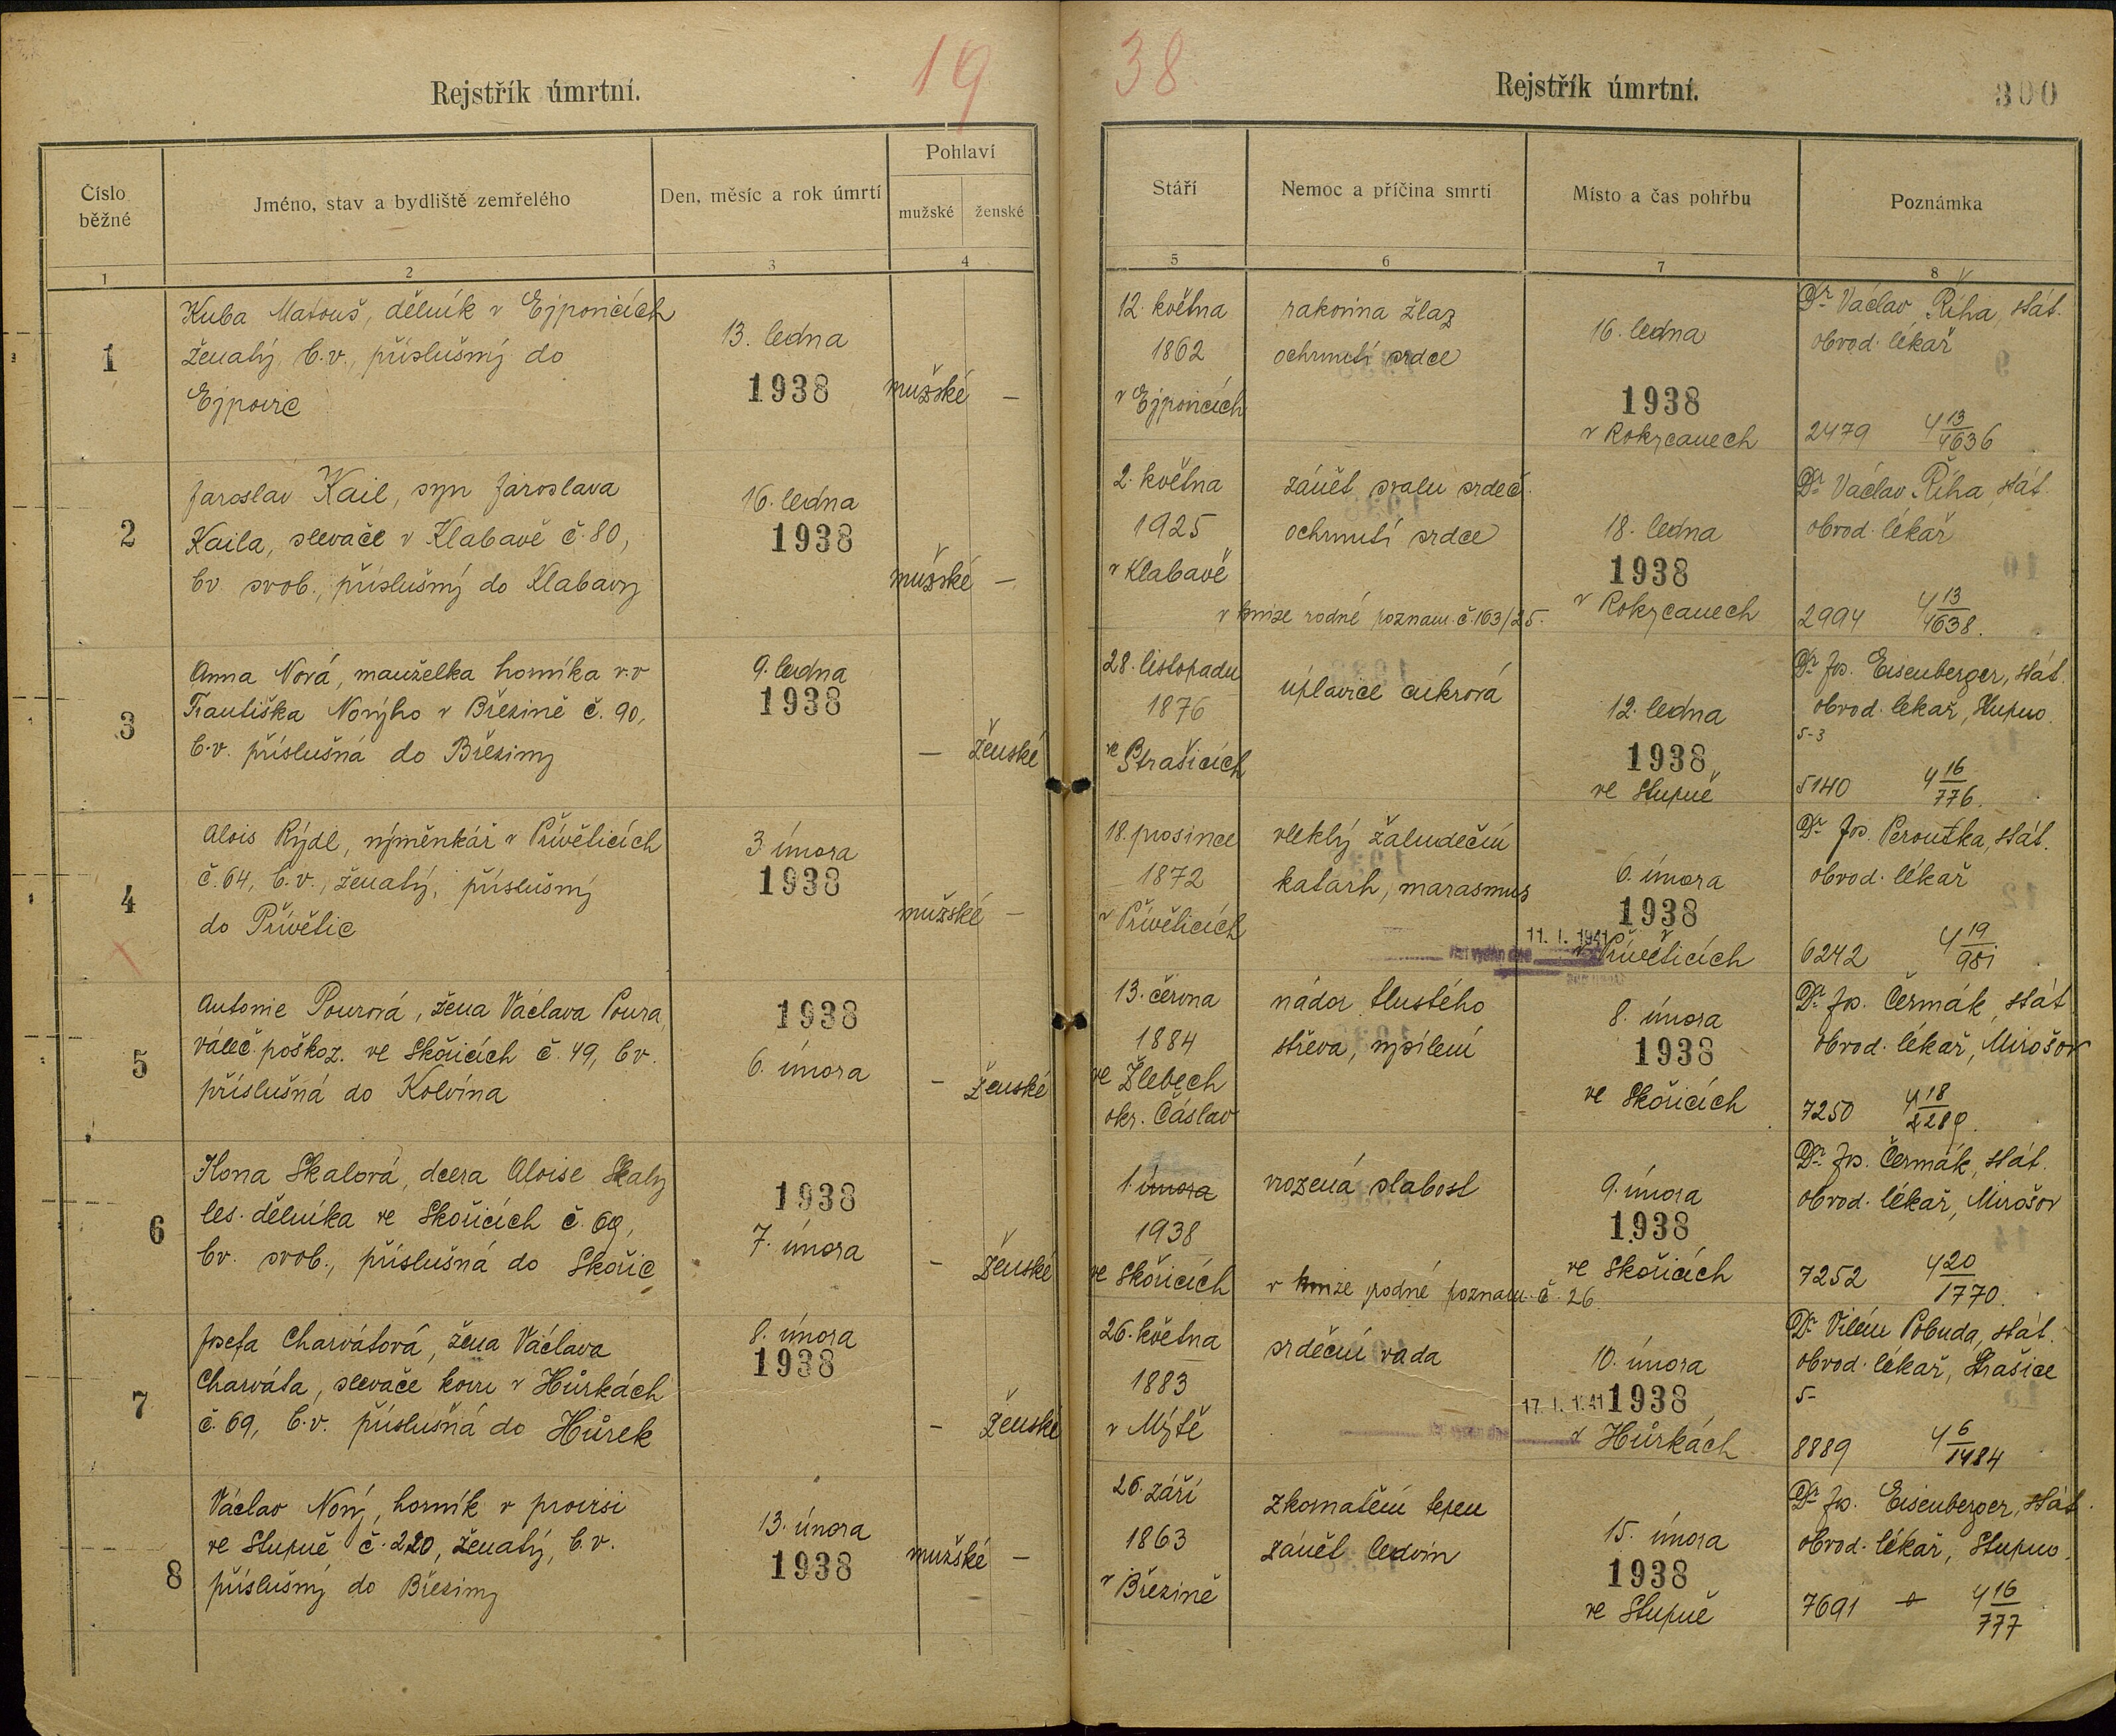 19
38
Rejstřík úmrtní.
Rejstřík úmrtní.
300
Číslo běžné
Jméno, stav a bydliště zemřelého
Den, měsíc a rok úmrtí
Pohlaví
mužské
ženské
Stáří
Nemoc a příčina smrti
Místo a čas pohřbu
Poznámka
1
2
3
4
5
6
7
8
1
Kuba Matouš, dělník v Ejpovicích
ženatý, b.v., příslušný do
Ejpovic
13. ledna
1938
mužské –
12. května
1862
v Ejpovicích
rakovina žlaz
ochrnutí srdce
16. ledna
1938
v Rokycanech
Dr Václav Říha, stát.
obvod. lékař
2479 4 13/4636
2
Jaroslav Kail, syn Jaroslava
Kaila, slevače v Klabavě č. 80,
bv svob., příslušný do Klabavy
16. ledna
1938
mužské –
2. května
1925
v Klabavě
zánět svalu srdeč.
ochrnutí srdce
v knize rodné poznam. č. 163/25.
18. ledna
1938
v Rokycanech
Dr Václav Říha, stát.
obvod. lékař
2994 4 13/4638.
3
Anna Nová, manželka horníka v.v
Františka Nového v Březině č. 90,
b.v. příslušná do Březiny
9. ledna
1938
– ženské
28. listopadu
1876
ve Strašicích
úplavice cukrová
12. ledna
1938
ve Stupně
Dr Jos. Eisenberger, stát.
obvod. lékař, Stupno.
5-3
5140 4 16/776.
4
Alois Rýdl, výměnkář v Přívěticích
č. 64, b.v., ženatý, příslušný
do Přívětic
3. února
1938
mužské –
18. prosince
1872
v Přívěticích
vleklý žaludeční
katarh, marasmus
6. února
1938
11. I. 1941
v Přívěticích
Dr Jos. Peroutka, stát.
obvod. lékař
6242 4 19/951
5
Antonie Pourová, žena Václava Poura,
váleč. poškoz. ve Skořicích č. 49, bv.
příslušná do Kolvína
1938
6. února
– ženské
13. června
1884
ve Žlebech
okr. Čáslav
nádor tlustého
střeva, vysílení
8. února
1938
ve Skořicích
Dr Jos. Čermák, stát
obvod. lékař, Mirošov
7250 4 18/2289.
6
Ilona Skalová, dcera Aloise Skaly
les. dělníka ve Skořicích č. 69,
bv. svob., příslušná do Skořic
1938
7. února
– ženské
1. února
1938
ve Skořicích
vrozená slabost
v knize rodné poznam. č. 26.
9. února
1938
ve Skořicích
Dr Jos. Čermák, stát.
obvod. lékař, Mirošov
7252 4 20/1770.
7
Josefa Charvátová, žena Václava
Charváta, slevače kovu v Hůrkách
č. 69, b.v. příslušná do Hůrek
8. února
1938
– ženské
26. května
1883
v Mýtě
srdeční vada
10. února
17. I. 1941 1938
v Hůrkách
Dr Vilém Pobuda, stát.
obvod. lékař, Strašice
5-
8889 4 6/1484
8
Václav Nový, horník v provisi
ve Stupně č. 220, ženatý, b.v.
příslušný do Březiny
13. února
1938
mužské –
26. září
1863
v Březině
zkornatění tepen
zánět ledvin
15. února
1938
ve Stupně
Dr Jos. Eisenberger, stát.
obvod. lékař, Stupno.
7691 4 16/777